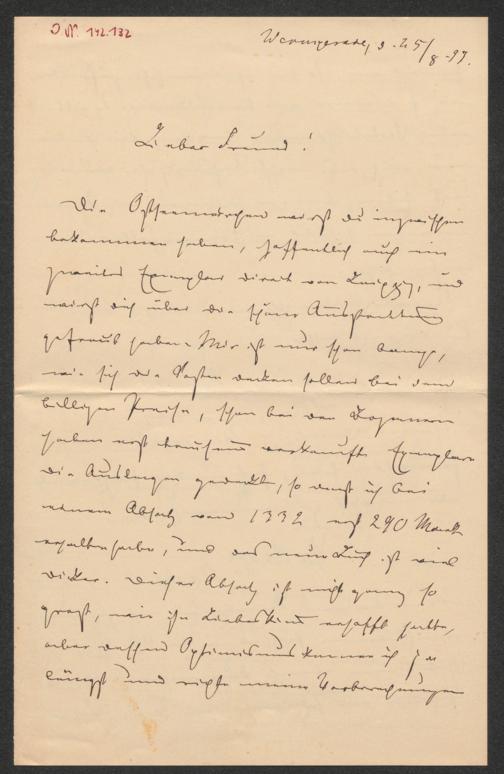 I N. 142.132
Wernigerode, d. 25/8.-97.
Lieber Freund!
Die Ostseemärchen wirst du inzwischen
bekommen haben, hoffentlich auch ein
zweites Exemplar direkt von Leipzig, und
wirst dich über die schöne Ausstattung
gefreut haben. Mir ist nur schon bange,
wie sich die Kosten decken sollen bei dem
billigen Preise, schon bei den
haben erst tausend verkaufte Exemplare
die Auslagen gedeckt, so daß ich bei
einem Absatz von 1332 erst 290 Mark
erhalten habe, und das neue Buch ist viel
dicker. Dieser Absatz ist nicht ganz so
groß, wie ihn Liebeskind erhofft hatte,
aber dessen Optimismus kenne ich ja
längst und richte meine Vorberechnungen